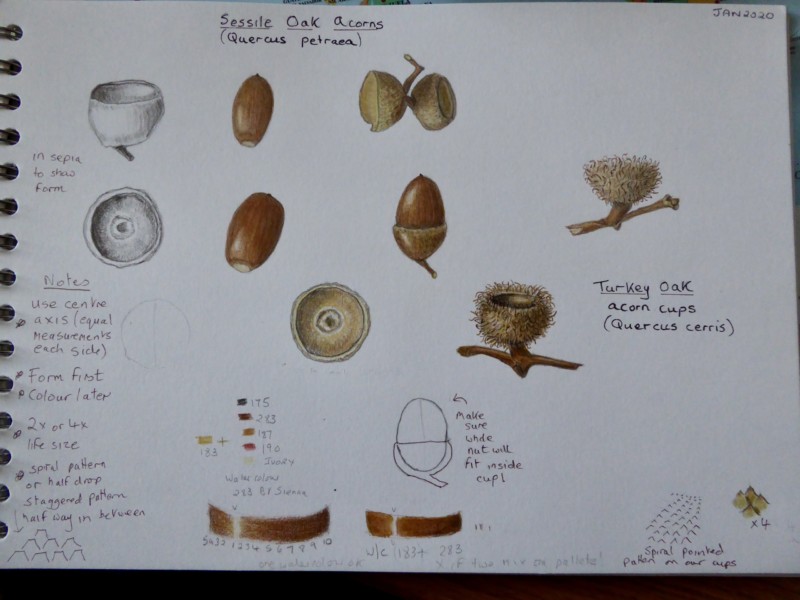 JAN 2020
Sessile Oak Acorns
(Quercus petraea)
in sepia
to show
form
Notes
use centre
axis (equal
measurements
each side)
Form first
Colour later
2x or 4x
life size
spiral pattern
or half drop
staggered pattern
half way in between
Turkey Oak
acorn cups
(Quercus cerris)
175
283
187
190
Ivory
183 +
Watercolour
283 Bt Sienna
Make
sure
whole
nut will
fit inside
cup!
5 4 3 2 1 2 3 4 5 6 7 8 9 10
W/C 183+ 283
x if two mix on pallete!
Spiral pointed
patten on our cups
x4